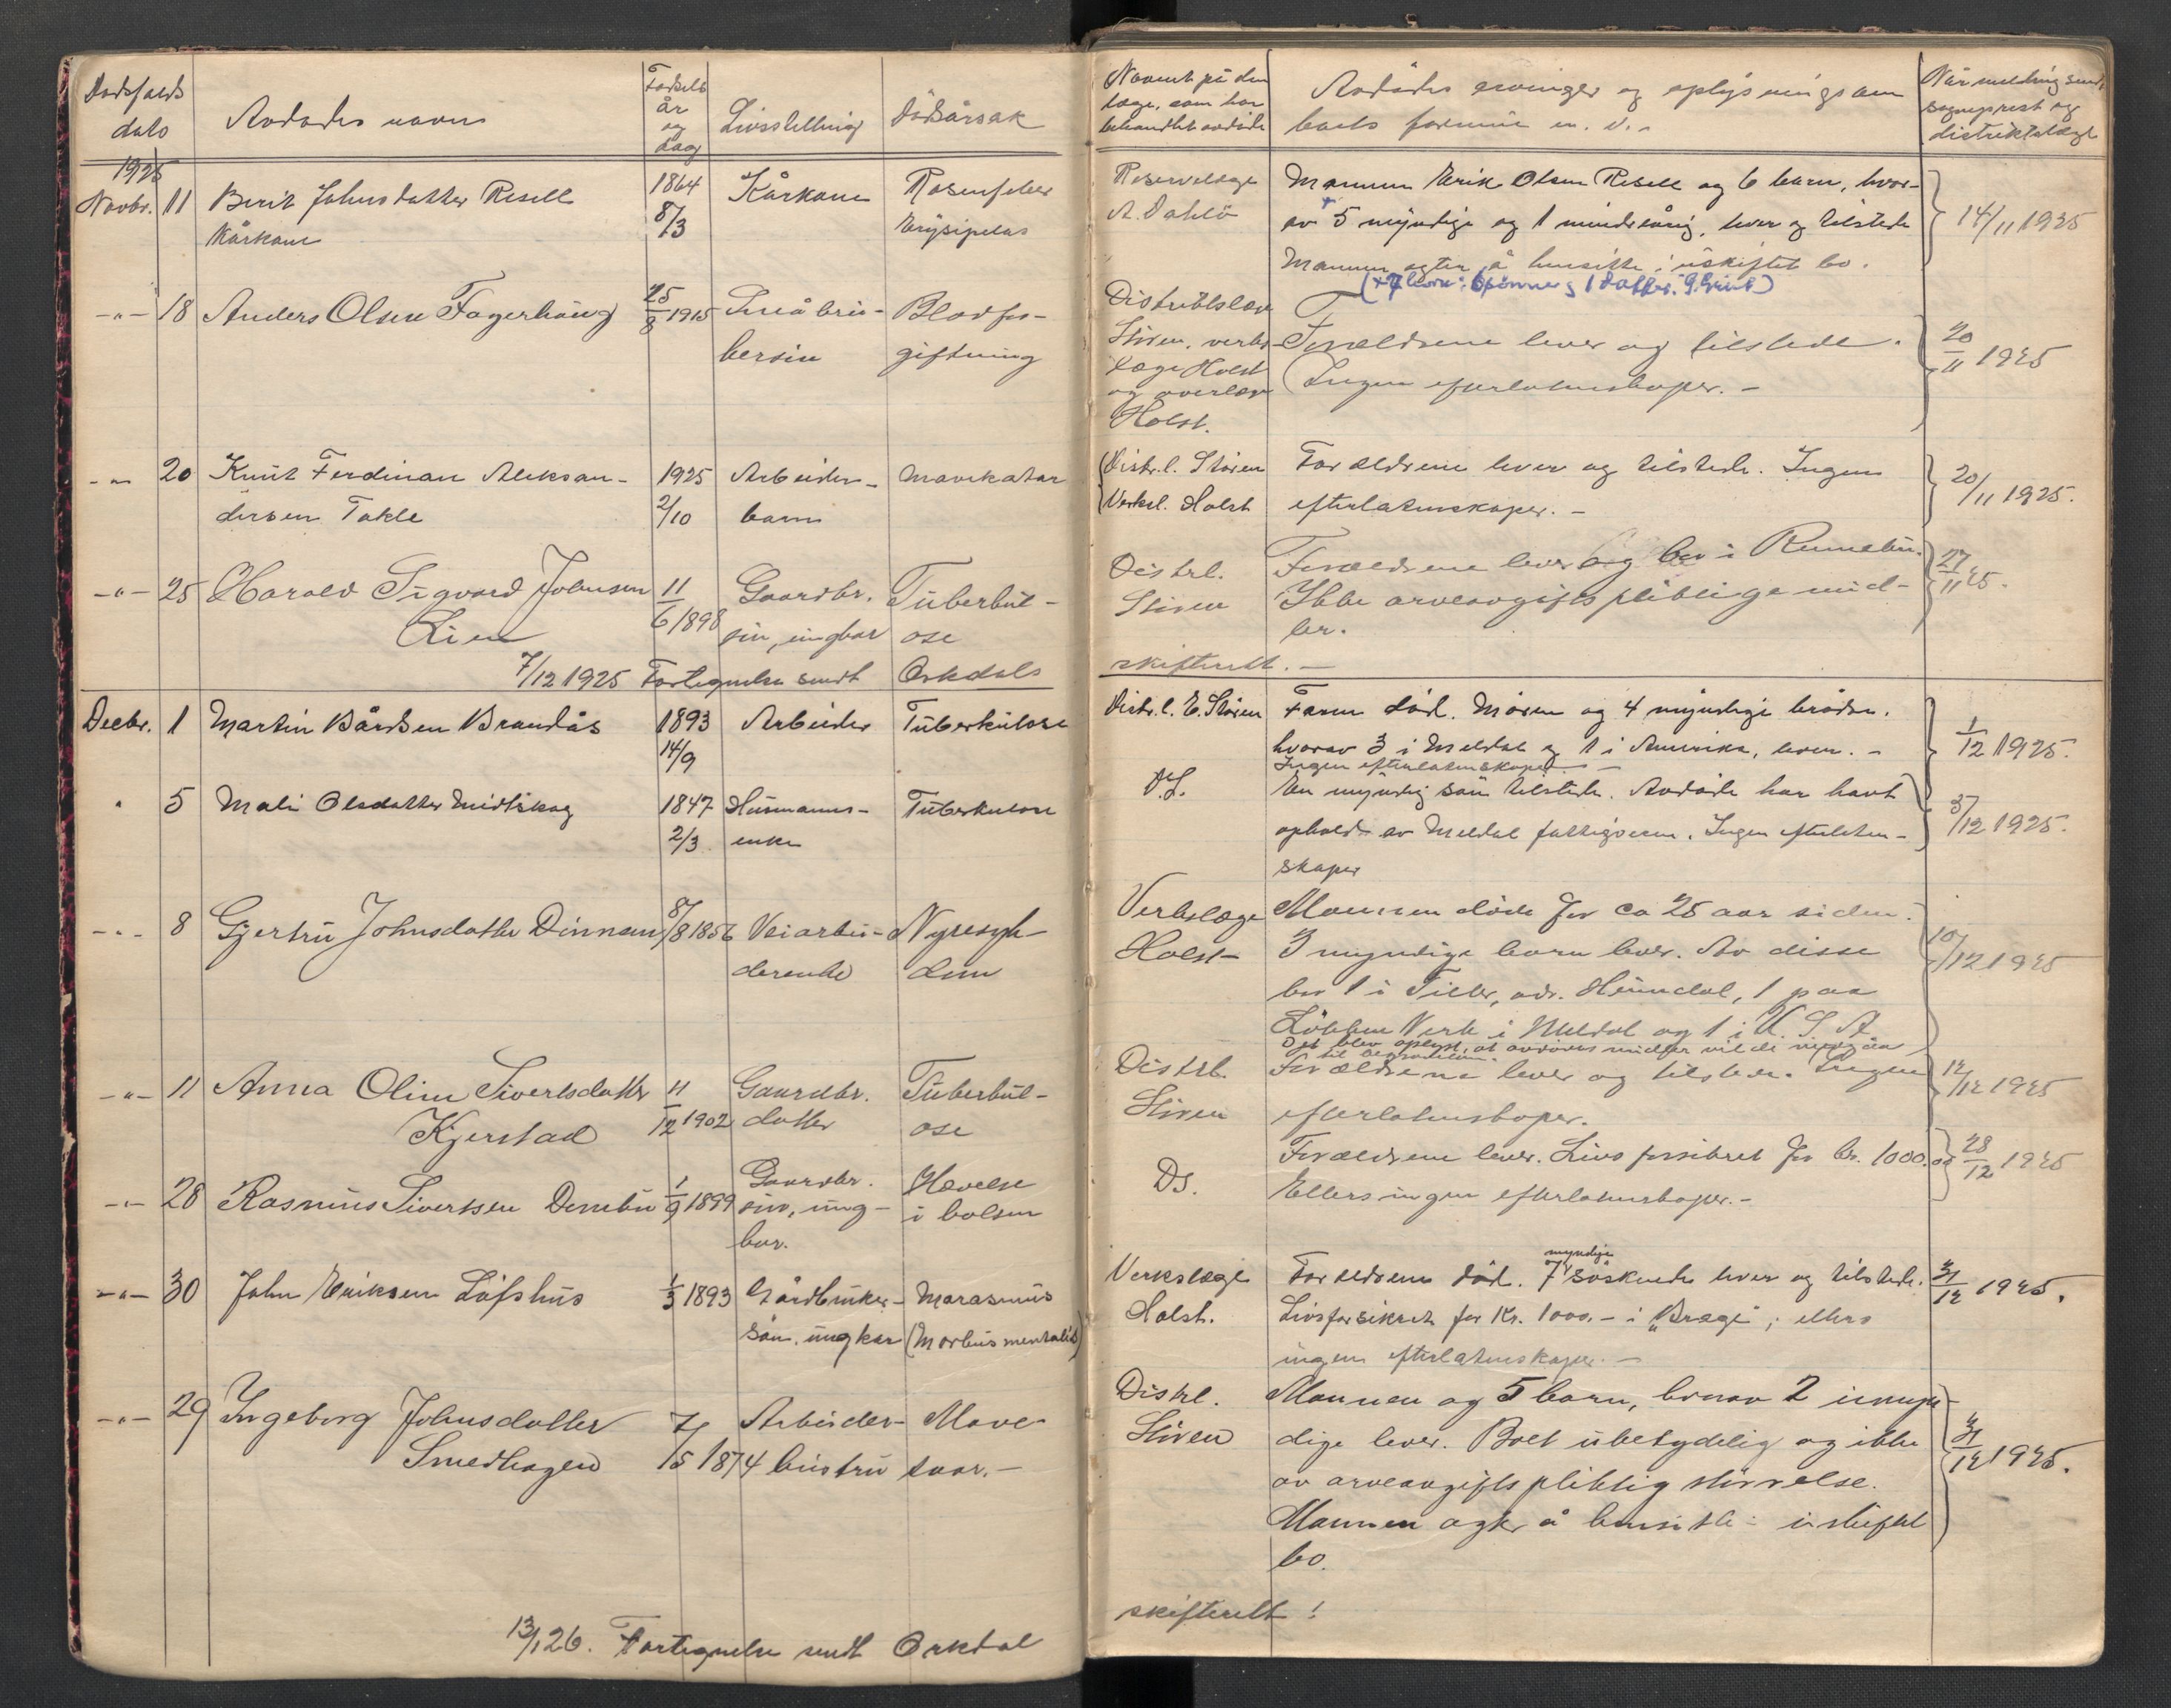 Dødsfalds
dato
Avdødes navn
Fødsels
år
og
dag
Livsstilling
Dødsårsak
1925
Novbr. 11 Berit Johnsdatter Resell 1864 Kårkone Rosenfeber
Kårkone 8/3 Erysipelas
-"- 18 Anders Olsen Fagerhaug 25/8 1915 Småbru- Blodfor-
kersøn giftning
-"- 20 Knut Ferdinan Aleksan- 1925 Arbeider- Mavekatar
dersen Takle 2/10 barn
-"- 25 Harald Sigvard Johnsen 11/6 1898 Gaardbr. Tuberkul-
Lien søn, ungkar ose
7/12 1925 Fortegnelse sendt Orkdals
Decbr. 1 Martin Bårdsen Brandås 1893 Arbeider Tuberkulose
14/9
" 5 Mali Olsdatter Midtskog 1847 Husmanns- Tuberkulose
2/3 enke
-"- 8 Gjertru Johnsdatter Dinnan 8/8 1856 Veiarbei- Nyresyk-
derenke dom
-"- 11 Anna Oline Sivertsdatter 11/12 1902 Gaardbr. Tuberkul-
Kjerstad datter ose
-"- 28 Rasmus Sivertsen Drnebu 1/9 1899 Gaardbr. Hævelse
søn, ung- i halsen
kar.
-"- 30 John Eriksen Löfshus 1/3 1893 Gårdbruker- Marasmus
søn. ungkar (Morbus mentalis)
-"- 29 Ingeborg Johnsdatter 7/5 1874 Arbeider- Mave-
Smedhagen hustru saar.-
13/1 26. Fortegnelse sendt Orkdal
Navnet på den
læge, som har
behandlet avdøde
Avdødes arvinger og oplysning om
boets formue m. v.
Når melding sendt
sogneprest og
distriktslæge
Reservelæge Mannen Erik Olsen Resell og 6 barn, hvor-
A. Dahlö av + 5 myndige og 1 mindreårig, lever og tilstede 14/11 1925
Mannen agter å hensitte i uskiftet bo.
(+ 7 barn: 6 sønner og 1 datter.
Distriktslæge
Stören, verks- Forældrene lever og tilstede. 20/11 1925
læge Holst Ingen efterlatenskaper. -
og overlæge
Holst.
Distr.l. Stören Forældrene lever og tilstede. Ingen 20/11 1925.
Verksl. Holst efterlatenskaper. -
Distrl. Forældrene lever og bor i Rennebu. 27/11 25.
Stören Ikke arveavgiftspliktige mid-
ler.
skifterett. -
Distr.l. E. Stören Faren död. Moren og 4 myndige brödre. 1/12 1925.
hvorav 3 i Meldal og 1 i Amerika, lever. -
Ingen efterlatenskaper -
D.S. En myndig sön tilstede. Avdøde har havt 5/12 1925.
ophold av Meldal fattigvesen. Ingen efterlaten-
skaper
Verkslæge Mannen døde for ca 25 aar siden.
Holst 3 myndige barn lever. Av disse 10/12 1925
bor 1 i Tiller, adr. Heimdal, 1 paa
Lökken Verk i Meldal og 1 i U. S. A
Det blev oplyst, at avdødes midler vil
til begravelsen.
Distrl. Forældrene lever og tilstede. Ingen 12/12 1925
Stören efterlatenskaper.
Ds. Forældrene lever. Livsforsikret for kr. 1000.00 28/12 1925
Ellers ingen efterlatenskaper.-
myndige
Verkslæge Forældrene död. 7 söskende lever og tilstede. 31/12 1925.
Holst. Livsforsikret for Kr. 1000.- i "Brage", ellers
ingen efterlatenskaper. -
Distrl. Mannen og 5 barn, hvorav 2 umyn-
Stören dige lever. Boet ubetydelig og ikke 31/12 1925.
av arveavgiftspliktig störrelse.
Mannen agter å hensitte i uskiftet
bo.
skifterett!